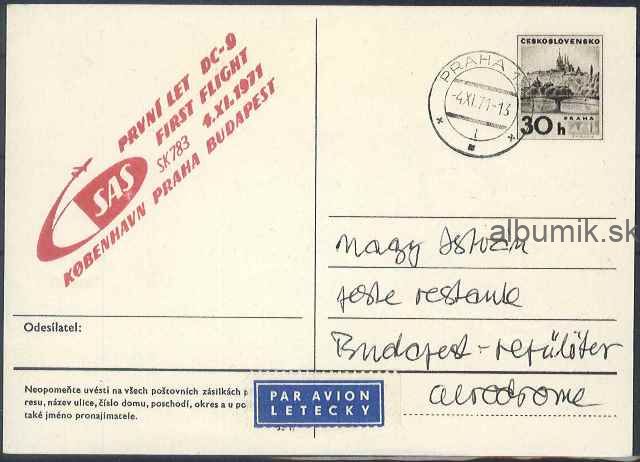 PRVNÍ LET DC-9
FIRST FLIGHT
SK783 4.XI.1971
SAS
KØBENHAVN PRAHA BUDAPEST
PRAHA 1
-4.XI.71-13
ČESKOSLOVENSKO
PRAHA
30 h
albumik.sk
Nagy István
poste restante
Budapest - repülőtér
aerodrome
Odesílatel:
Neopomeňte uvésti na všech poštovních zásilkách p
resu, název ulice, číslo domu, poschodí, okres a u po
také jméno pronajímatele.
PAR AVION
LETECKY